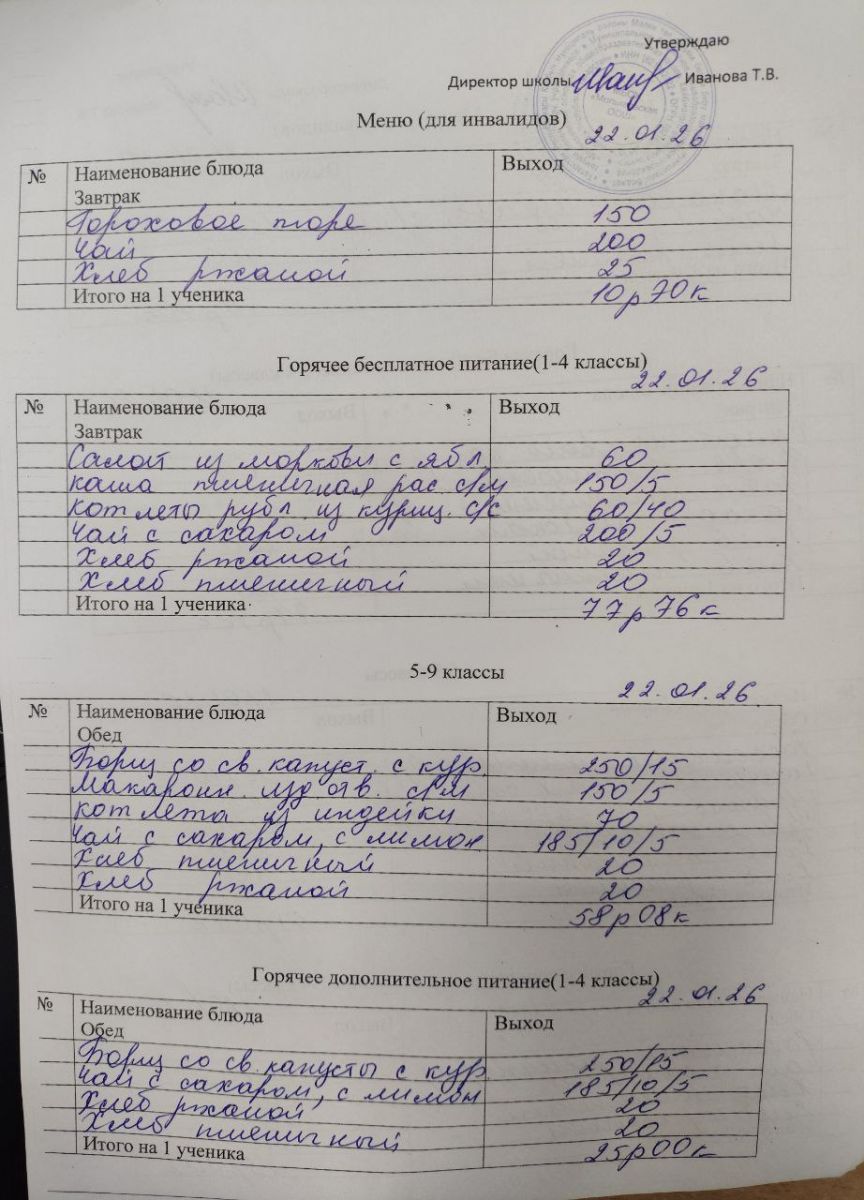 Утверждаю
Директор школы Иванова Т.В.
Меню (для инвалидов)
22.01.26
№ Наименование блюда Выход
Завтрак
Гороховое пюре 150
Чай 200
Хлеб ржаной 25
Итого на 1 ученика 10р70к
Горячее бесплатное питание(1-4 классы)
22.01.26
№ Наименование блюда Выход
Завтрак
Салат из моркови с ябл 60
каша пшеничная рас с/м 150/5
котлеты рубл. из куриц. с/с 60/40
Чай с сахаром 200/5
Хлеб ржаной 20
Хлеб пшеничный 20
Итого на 1 ученика 77р76к
5-9 классы
22.01.26
№ Наименование блюда Выход
Обед
Борщ со св. капуст. с кур. 250/15
Макаронн. изд отв. с/м 150/5
котлета из индейки 70
Чай с сахаром, с лимон 185/10/5
Хлеб пшеничный 20
Хлеб ржаной 20
Итого на 1 ученика 58р08к
Горячее дополнительное питание(1-4 классы)
22.01.26
№ Наименование блюда Выход
Обед
Борщ со св. капусты с кур 250/15
Чай с сахаром, с лимон 185/10/5
Хлеб ржаной 20
Хлеб пшеничный 20
Итого на 1 ученика 25р00к